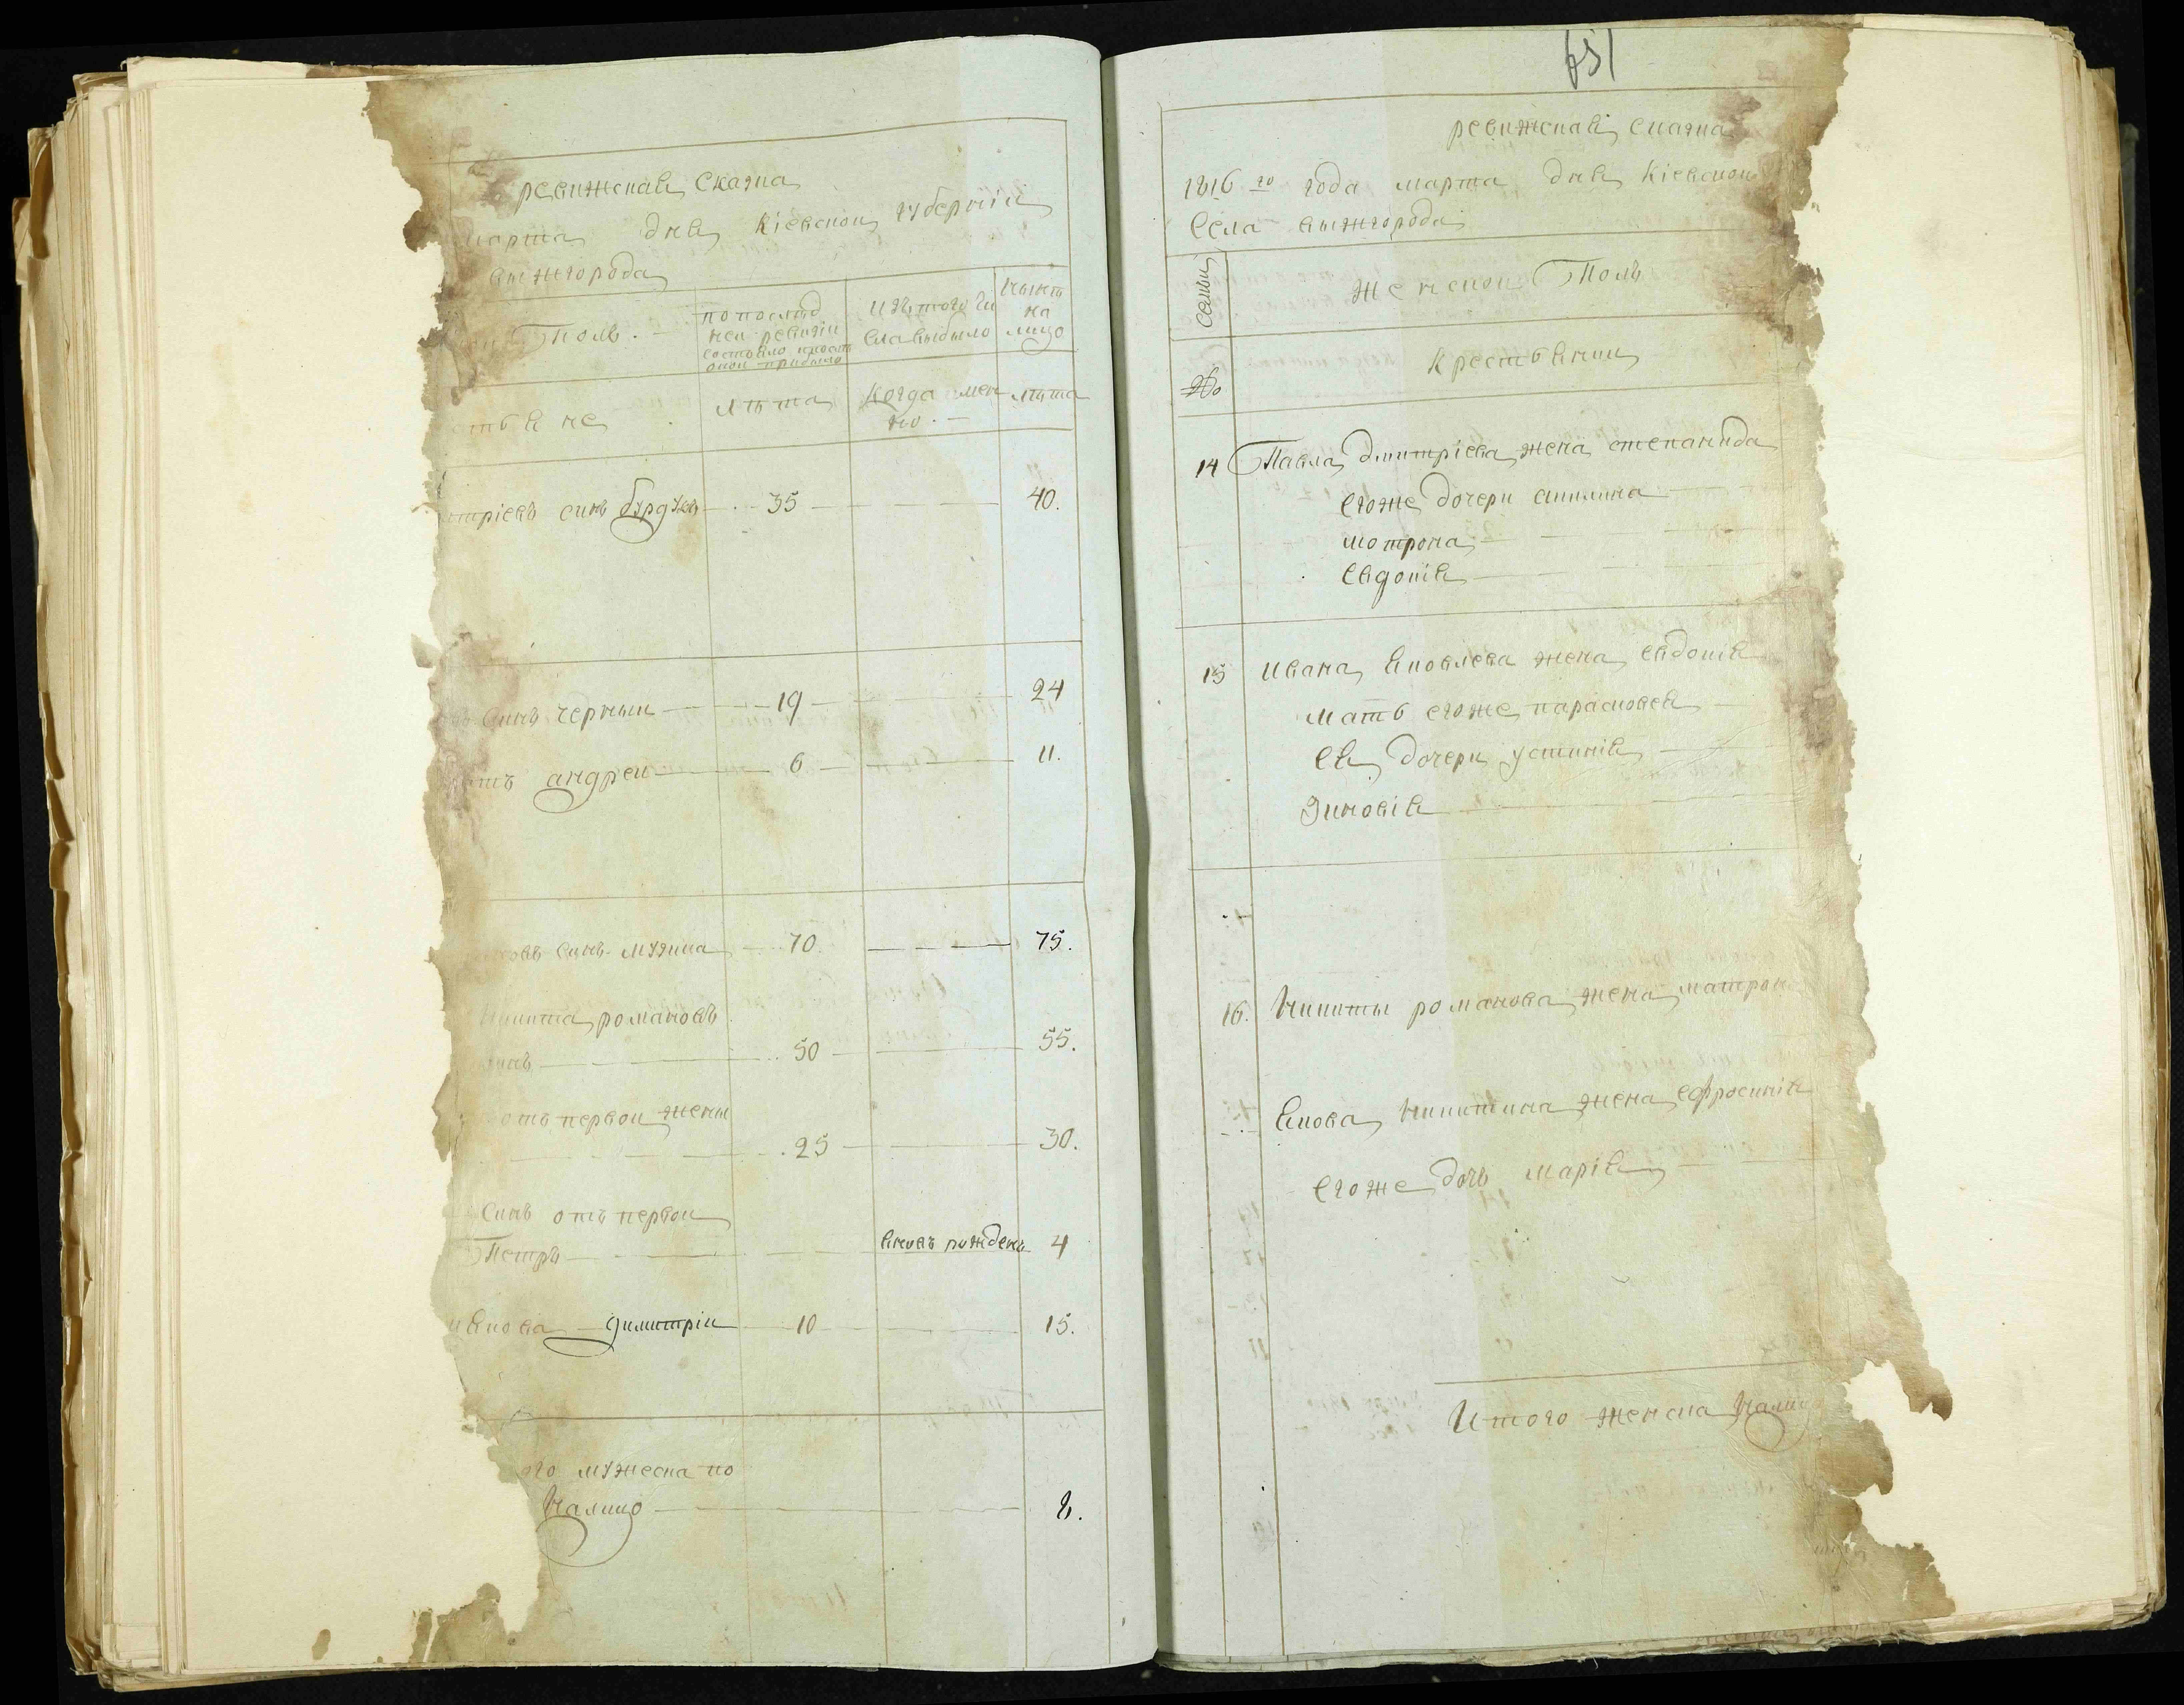 ревижская сказка
марта дня Кіевскои губерніи
вышгорода
Полъ. —
попослѣд
неи ревизіи
состояло ипослѣ
онои прибыло
изътого чи
сла выбыло
нынѣ
на
лицо
стьяне
лѣта
Когда имен
но. —
лѣта
митріевъ синъ бурдукъ 35 40.
синъ черныи 19 24
братъ андреи 6 11.
новъ синъ музика 70. 75.
Никита романовъ
синъ 50 55.
отъ первои жены
25 30.
Синъ отъ первои
Петръ вновъ рожденъ 4
Якова димитріи 10 15.
ого мужеска по
Налицо 8.
651
ревижская сказка
1816 го года марта дня Кіевскои
Села вышгорода
Семьи
женскои Полъ
№
Крестьянки
14 Павла дмитріева жена степанида
егоже дочери акилина
мотрона
Евдокія
15 Ивана Яковлева жена евдокія
мать егоже парасковея
ея дочери устинія
зиновія
16. Никиты романова жена матрона
Якова Никитина жена ефросинія
егоже дочь марія
Итого женска налицо